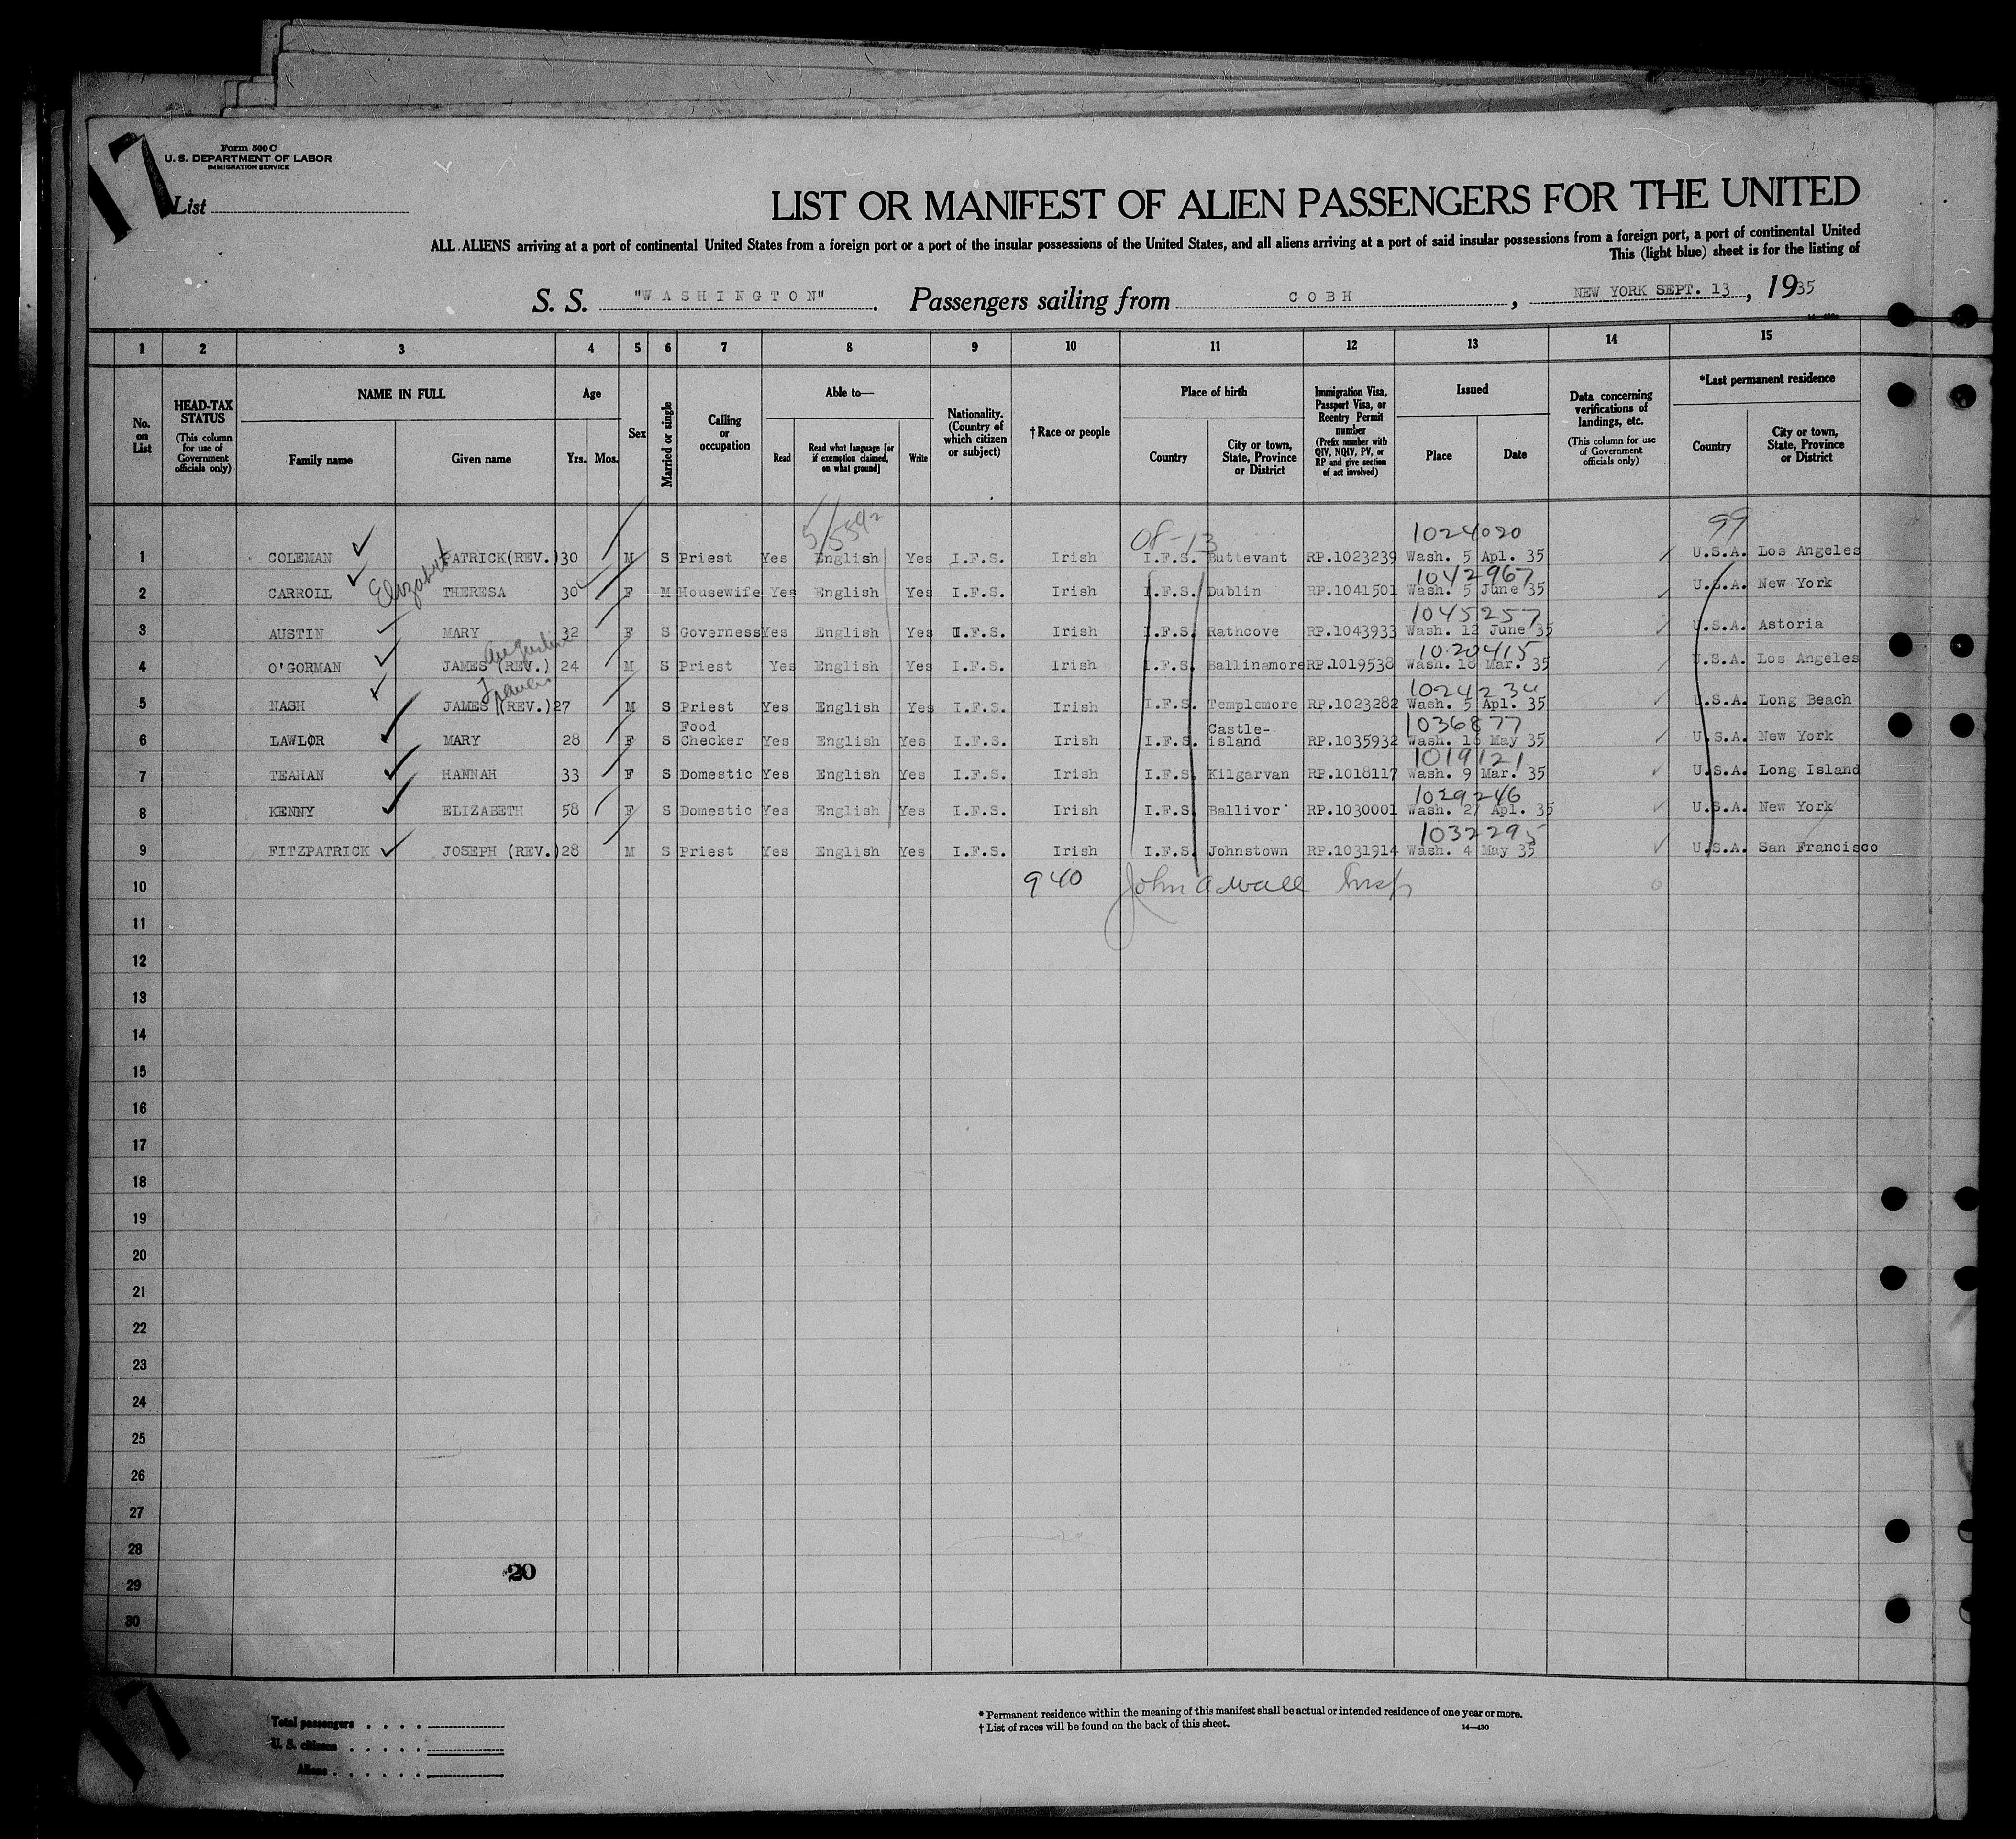 17
Form 500 C
U. S. DEPARTMENT OF LABOR
IMMIGRATION SERVICE
List
LIST OR MANIFEST OF ALIEN PASSENGERS FOR THE UNITED
ALL ALIENS arriving at a port of continental United States from a foreign port or a port of the insular possessions of the United States, and all aliens arriving at a port of said insular possessions from a foreign port, a port of continental United
This (light blue) sheet is for the listing of
S. S. "WASHINGTON". Passengers sailing from COBH, NEW YORK SEPT. 13, 1935
1 2 3 4 5 6 7 8 9 10 11 12 13 14 15
No. on List
HEAD-TAX STATUS (This column for use of Government officials only)
NAME IN FULL Family name Given name
Age Yrs. Mos.
Sex
Married or single
Calling or occupation
Able to— Read Read what language [or if exemption claimed, on what ground] Write
Nationality. (Country of which citizen or subject)
† Race or people
Place of birth Country City or town, State, Province or District
Immigration Visa, Passport Visa, or Reentry Permit number (Prefix number with QIV, NQIV, PV, or RP and give section of act involved)
Issued Place Date
Data concerning verifications of landings, etc. (This column for use of Government officials only)
*Last permanent residence Country City or town, State, Province or District
5/5592 08-13 1024020 99
1 COLEMAN PATRICK(REV.) 30 M S Priest Yes English Yes I.F.S. Irish I.F.S. Buttevant RP.1023239 Wash. 5 Apl. 35 U.S.A. Los Angeles
Elizabeth 1042967
2 CARROLL THERESA 30 F M Housewife Yes English Yes I.F.S. Irish I.F.S. Dublin RP.1041501 Wash. 5 June 35 U.S.A. New York
1045257
3 AUSTIN MARY 32 F S Governess Yes English Yes I.F.S. Irish I.F.S. Rathcove RP.1043933 Wash. 12 June 35 U.S.A. Astoria
1020415
4 O'GORMAN JAMES (REV.) 24 M S Priest Yes English Yes I.F.S. Irish I.F.S. Ballinamore RP.1019538 Wash. 18 Mar. 35 U.S.A. Los Angeles
Francis 1024234
5 NASH JAMES (REV.) 27 M S Priest Yes English Yes I.F.S. Irish I.F.S. Templemore RP.1023282 Wash. 5 Apl. 35 U.S.A. Long Beach
1036877
6 LAWLOR MARY 28 F S Food Checker Yes English Yes I.F.S. Irish I.F.S. Castle-island RP.1035932 Wash. 18 May 35 U.S.A. New York
1019121
7 TEAHAN HANNAH 33 F S Domestic Yes English Yes I.F.S. Irish I.F.S. Kilgarvan RP.1018117 Wash. 9 Mar. 35 U.S.A. Long Island
1029246
8 KENNY ELIZABETH 58 F S Domestic Yes English Yes I.F.S. Irish I.F.S. Ballivor RP.1030001 Wash. 27 Apl. 35 U.S.A. New York
1032295
9 FITZPATRICK JOSEPH (REV.) 28 M S Priest Yes English Yes I.F.S. Irish I.F.S. Johnstown RP.1031914 Wash. 4 May 35 U.S.A. San Francisco
10 940 John A Wall Insp
11
12
13
14
15
16
17
18
19
20
21
22
23
24
25
26
27
28
20
29
30
17
Total passengers
U. S. citizens
Aliens
* Permanent residence within the meaning of this manifest shall be actual or intended residence of one year or more.
† List of races will be found on the back of this sheet. 14—430